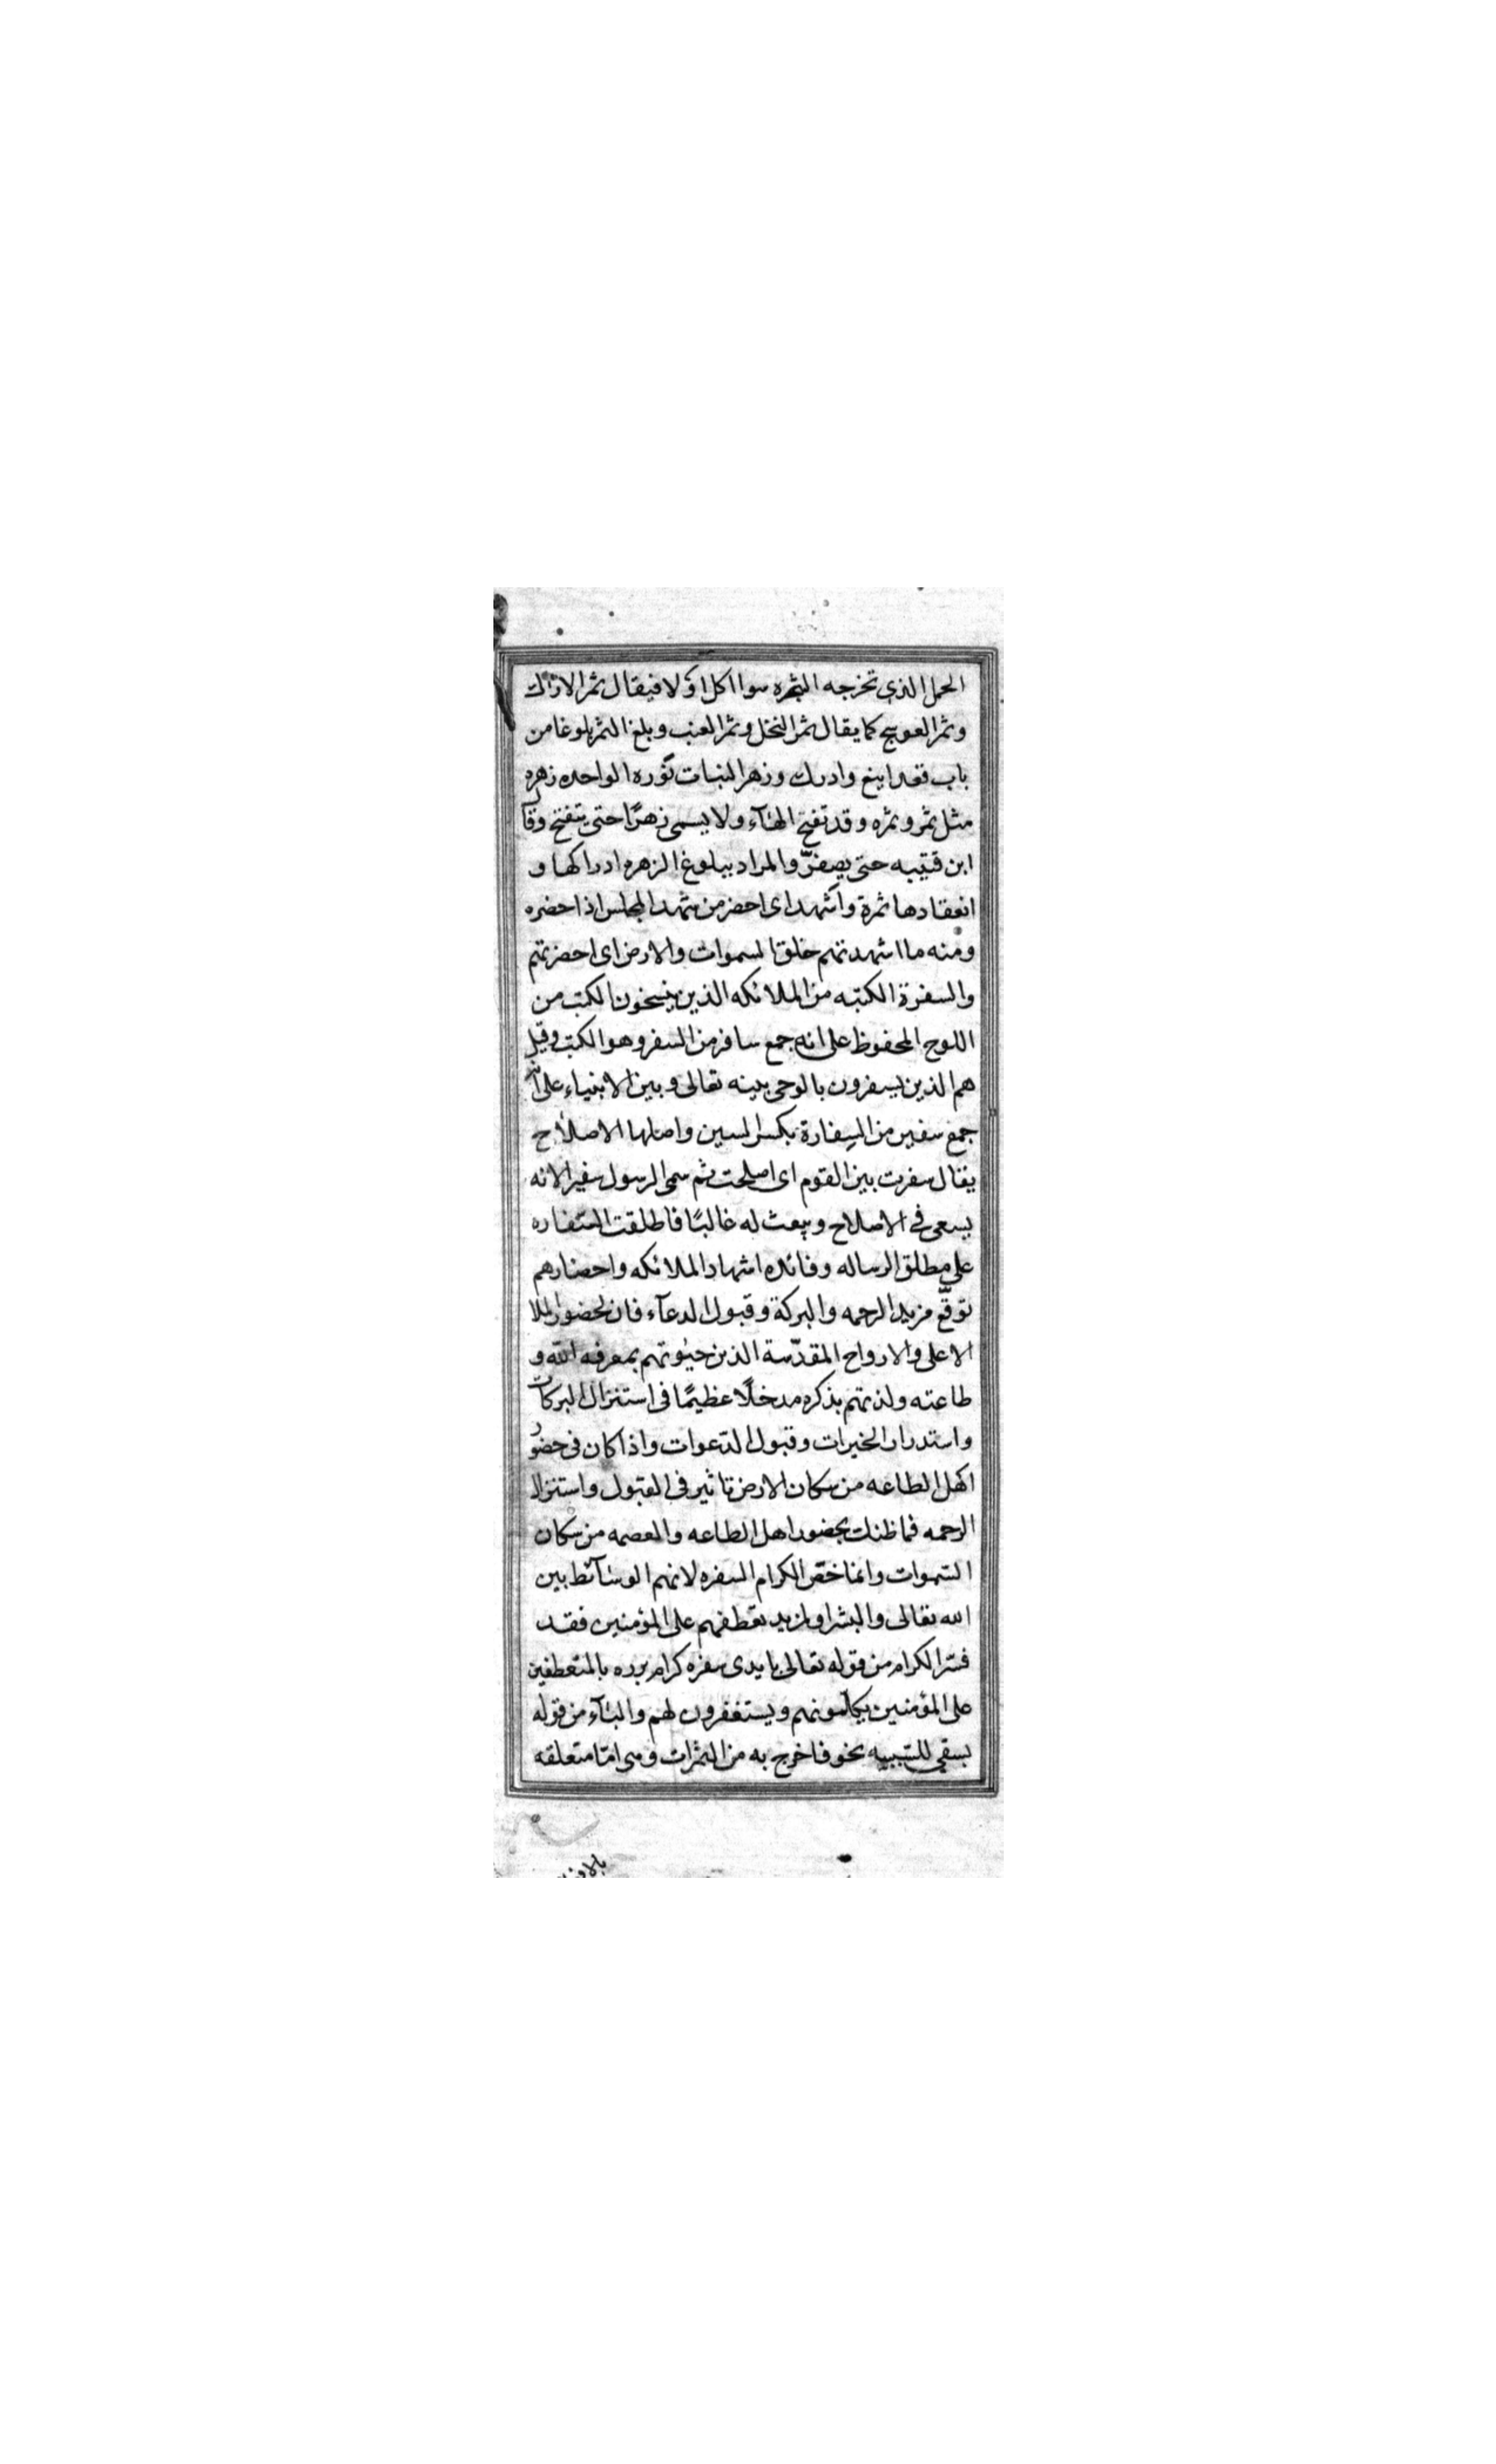 الحمل الذي تخرجه الثجره سوا اكل اولا فيقال ثمر الاراك
وثمر العوسج كما يقال ثمر النخل وثمر العنب وبلغ الثمر بلوغا من
باب قعد اينع وادرك وزهر النبات نَوْره الواحده زهره
مثل ثمر وثمره وقد تفتح الهآء ولا يسمى زهرًا حتى يتفتح وقال
ابن قتيبه حتى يصفرّ والمراد ببلوغ الزهره ادراكها و
انعقادها ثمرة وأشهد اى احضر من شهد المجلس اذا حضره
ومنه ما اشهدتهم خلق السموات والارض اى احضرتهم
والسفرة الكتبه من الملائكه الذين ينسخون الكتب من
اللوح المحفوظ على انه جمع سافر من السفر وهو الكتب وقيل
هم الذين يسفرون بالوحى بينه تعالى وبين الانبياء على انه
جمع سفير من السِفارة بكسر السين واصلها الاصلاح
يقال سفرت بين القوم اى اصلحت ثم سمى الرسول سفيرا لانه
يسعى في الاصلاح ويبعث له غالبًا فاطلقت السّفاره
على مطلق الرساله وفائده اشهاد الملائكه واحضارهم
توقّع مزيد الرحمه والبركة وقبول الدعآء فان لحضور الملا
الاعلى والارواح المقدّسة الذين حيٰوتهم بمعرفه الله و
طاعته ولذتهم بذكره مدخلًا عظيمًا فى استنزال البركات
واستدرار الخيرات وقبول الدّعوات واذا كان فى حضور
اهل الطاعه من سكان الارض تاثير فى القبول واستنزال
الرحمه فما ظنك بحضور اهل الطاعه والعصمه من سكان
السّموات وانما خصّ الكرام السفره لانهم الوسآئط بين
الله تعالى والبشر او لمزيد تعطفهم على المؤمنين فقد
فسّر الكرام من قوله تعالى بايدى سفره كرام برره بالمتعطفين
على المؤمنين يكلّمونهم ويستغفرون لهم والبآء من قوله
بسقى للسّببيه نحو فاخرج به من الثمرات وهى امّا متعلقه